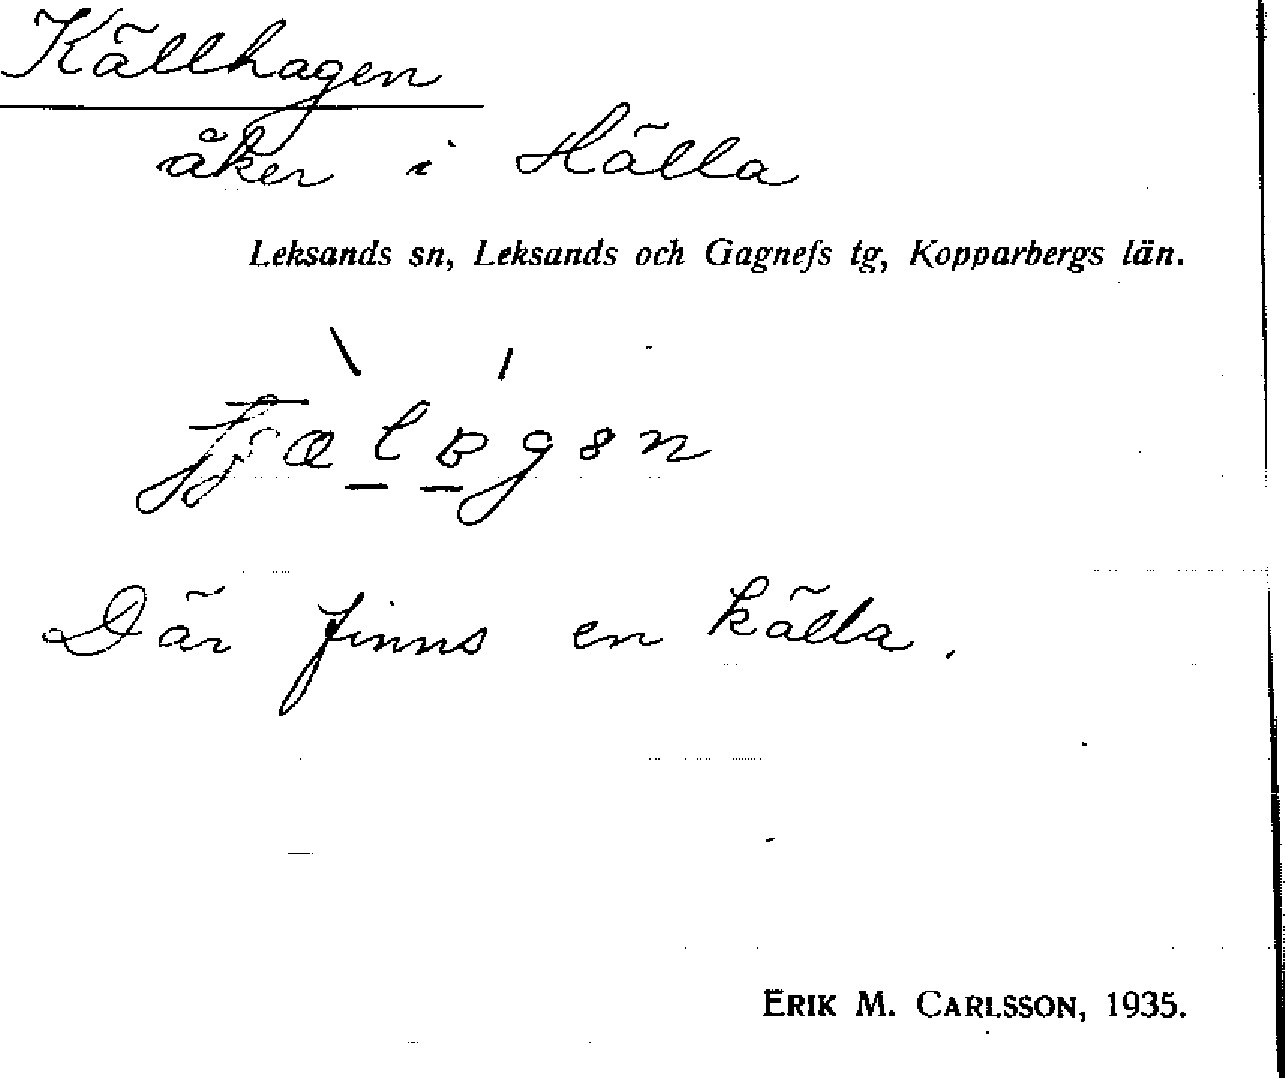 Källhagen
åker i Hälla
Leksands sn, Leksands och Gagnefs tg, Kopparbergs län.
Där finns en källa.
ERIK M. CARLSSON, 1935.